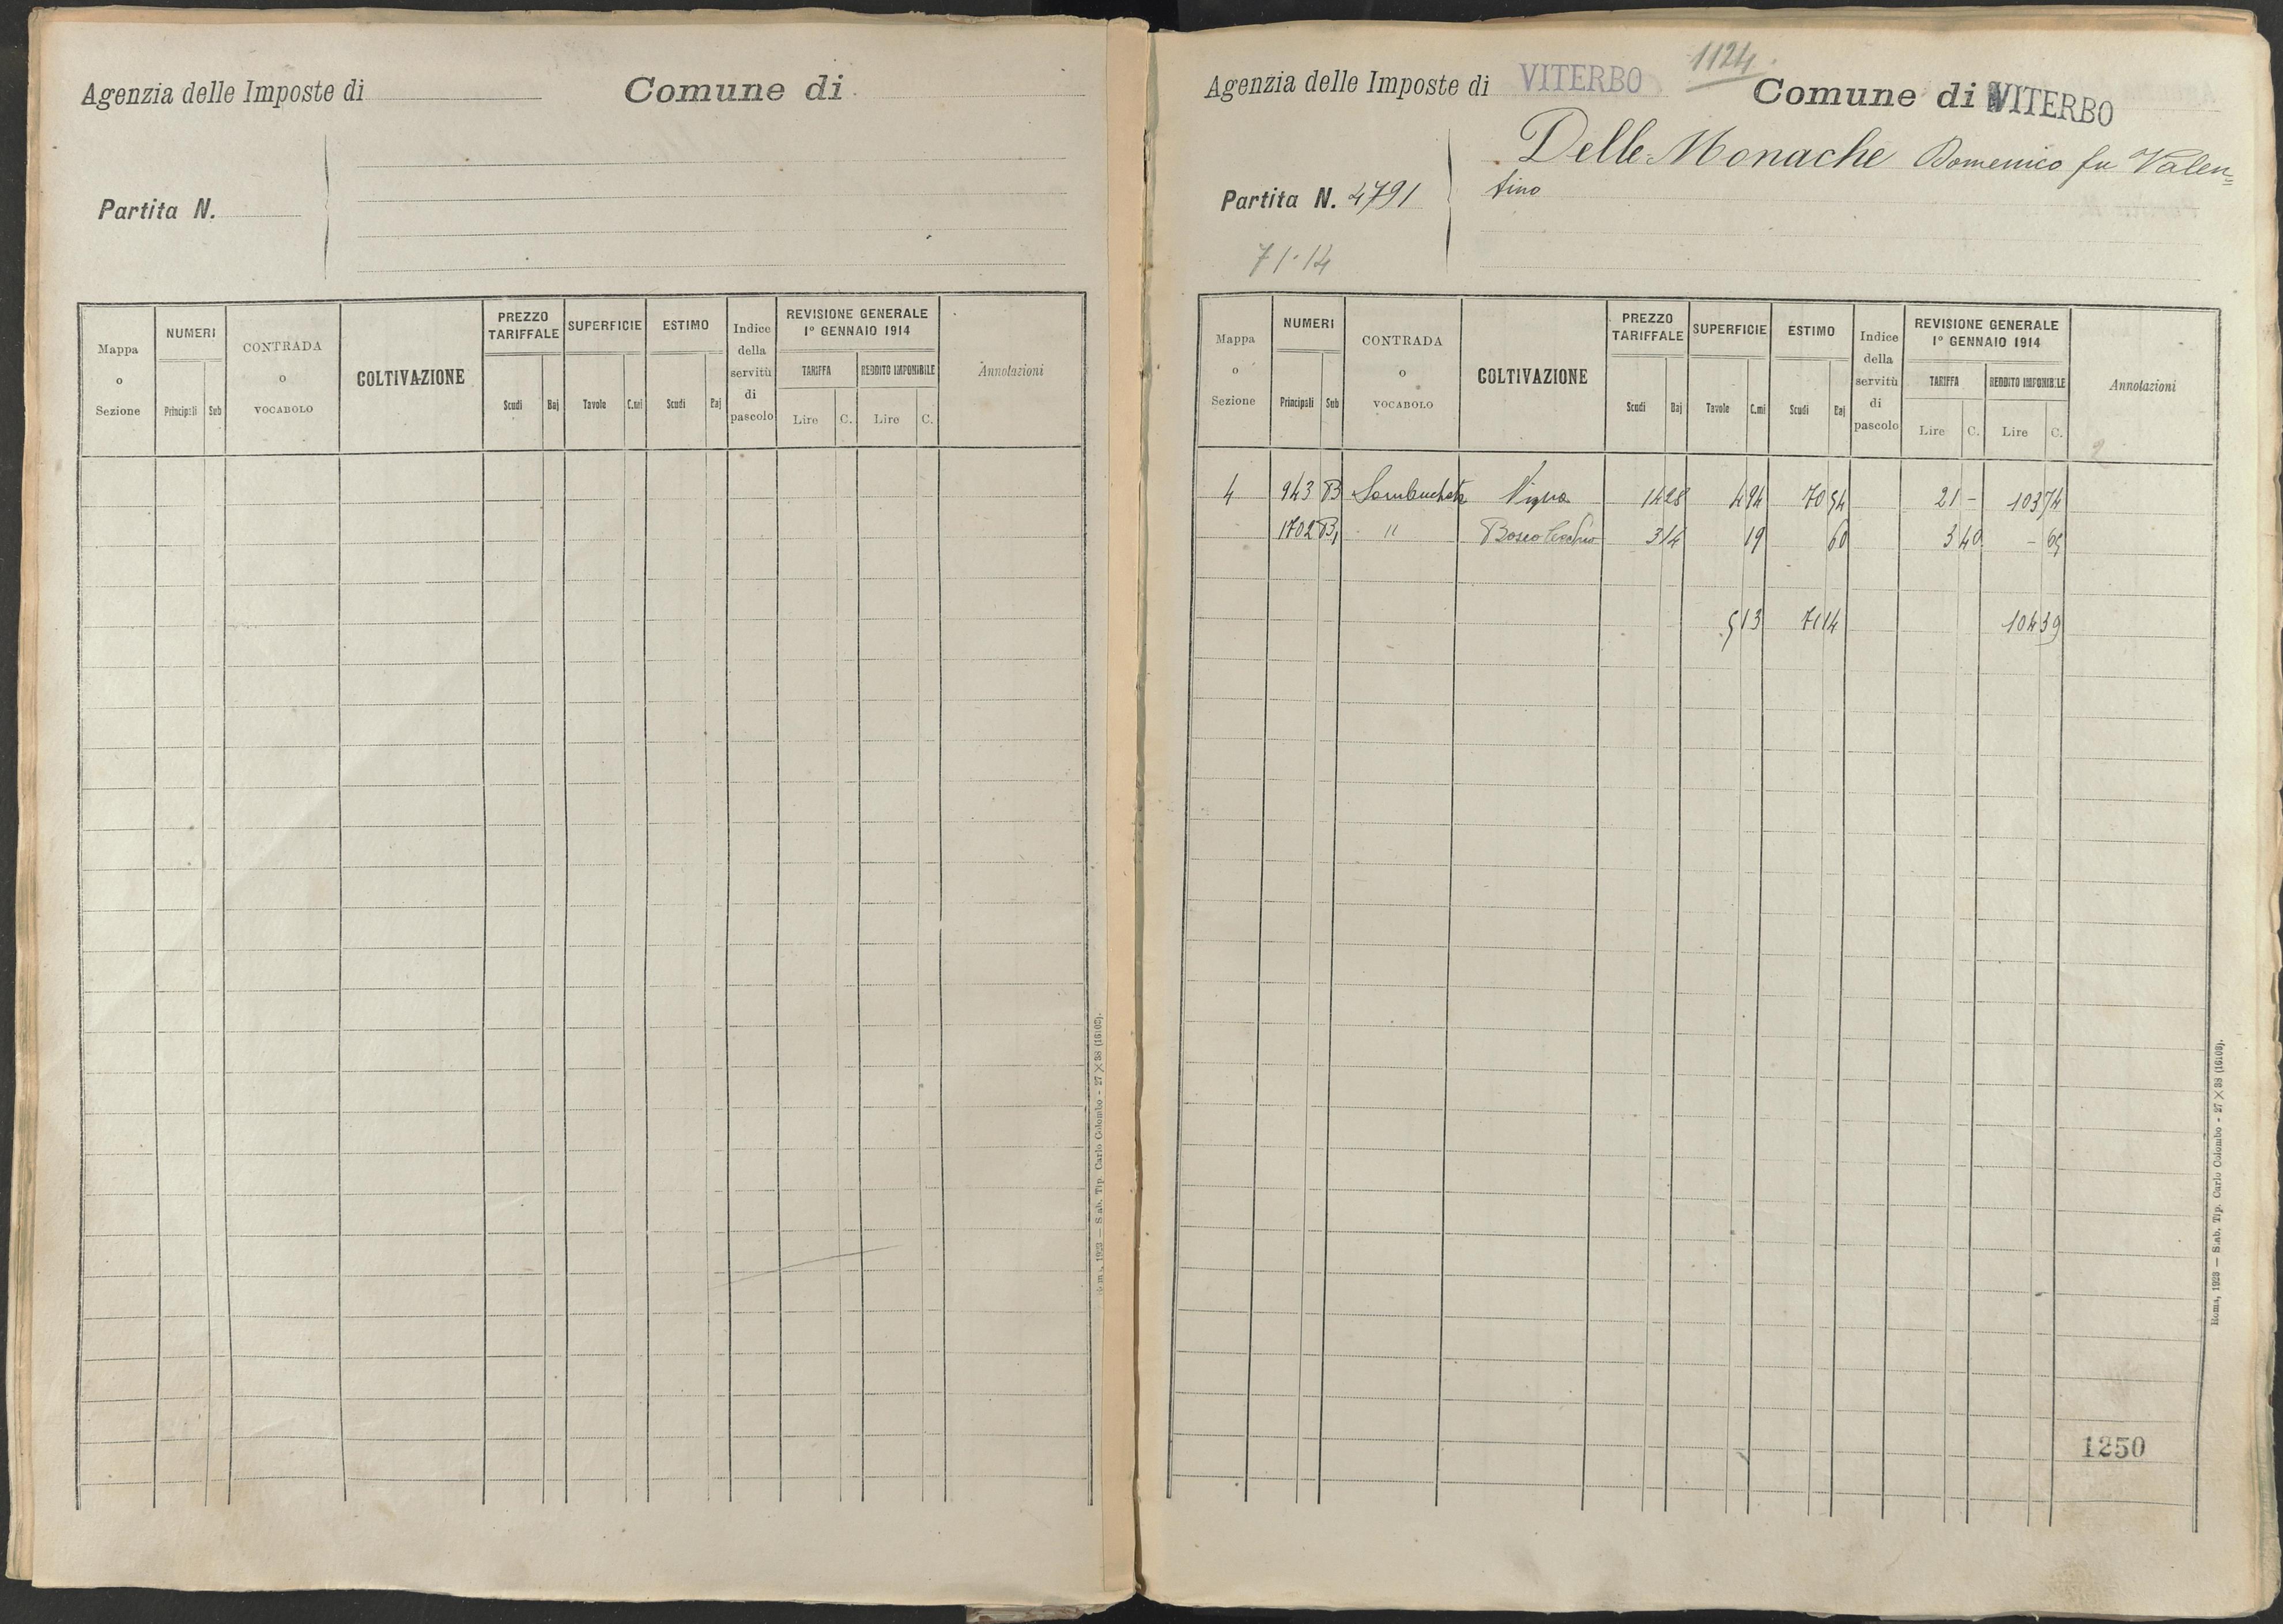 Agenzia delle Imposte di
Comune di
Partita N.
Mappa o Sezione
NUMERI
Principali Sub
CONTRADA o VOCABOLO
COLTIVAZIONE
PREZZO TARIFFALE
Scudi Baj
SUPERFICIE
Tavole C.mi
ESTIMO
Scudi Baj
Indice della servitù di pascolo
REVISIONE GENERALE
1° GENNAIO 1914
TARIFFA
Lire C.
REDDITO IMPONIBILE
Lire C.
Annotazioni
Roma, 1923 — Stab. Tip. Carlo Colombo - 27 × 38 (16103).
1124
Agenzia delle Imposte di VITERBO
Comune di VITERBO
Delle Monache Domenico fu Valen=
tino
Partita N. 4791
71.14
Mappa o Sezione
NUMERI
Principali Sub
CONTRADA o VOCABOLO
COLTIVAZIONE
PREZZO TARIFFALE
Scudi Baj
SUPERFICIE
Tavole C.mi
ESTIMO
Scudi Baj
Indice della servitù di pascolo
REVISIONE GENERALE
1° GENNAIO 1914
TARIFFA
Lire C.
REDDITO IMPONIBILE
Lire C.
Annotazioni
2
4 943 B Vigna 14 28 4 94 70 54 21 - 103 74
1702 B1 " Bosco 3 14 19 60 3 40 - 65
5 13 71 14 104 39
1250
Roma, 1923 — Stab. Tip. Carlo Colombo - 27 × 38 (16103).